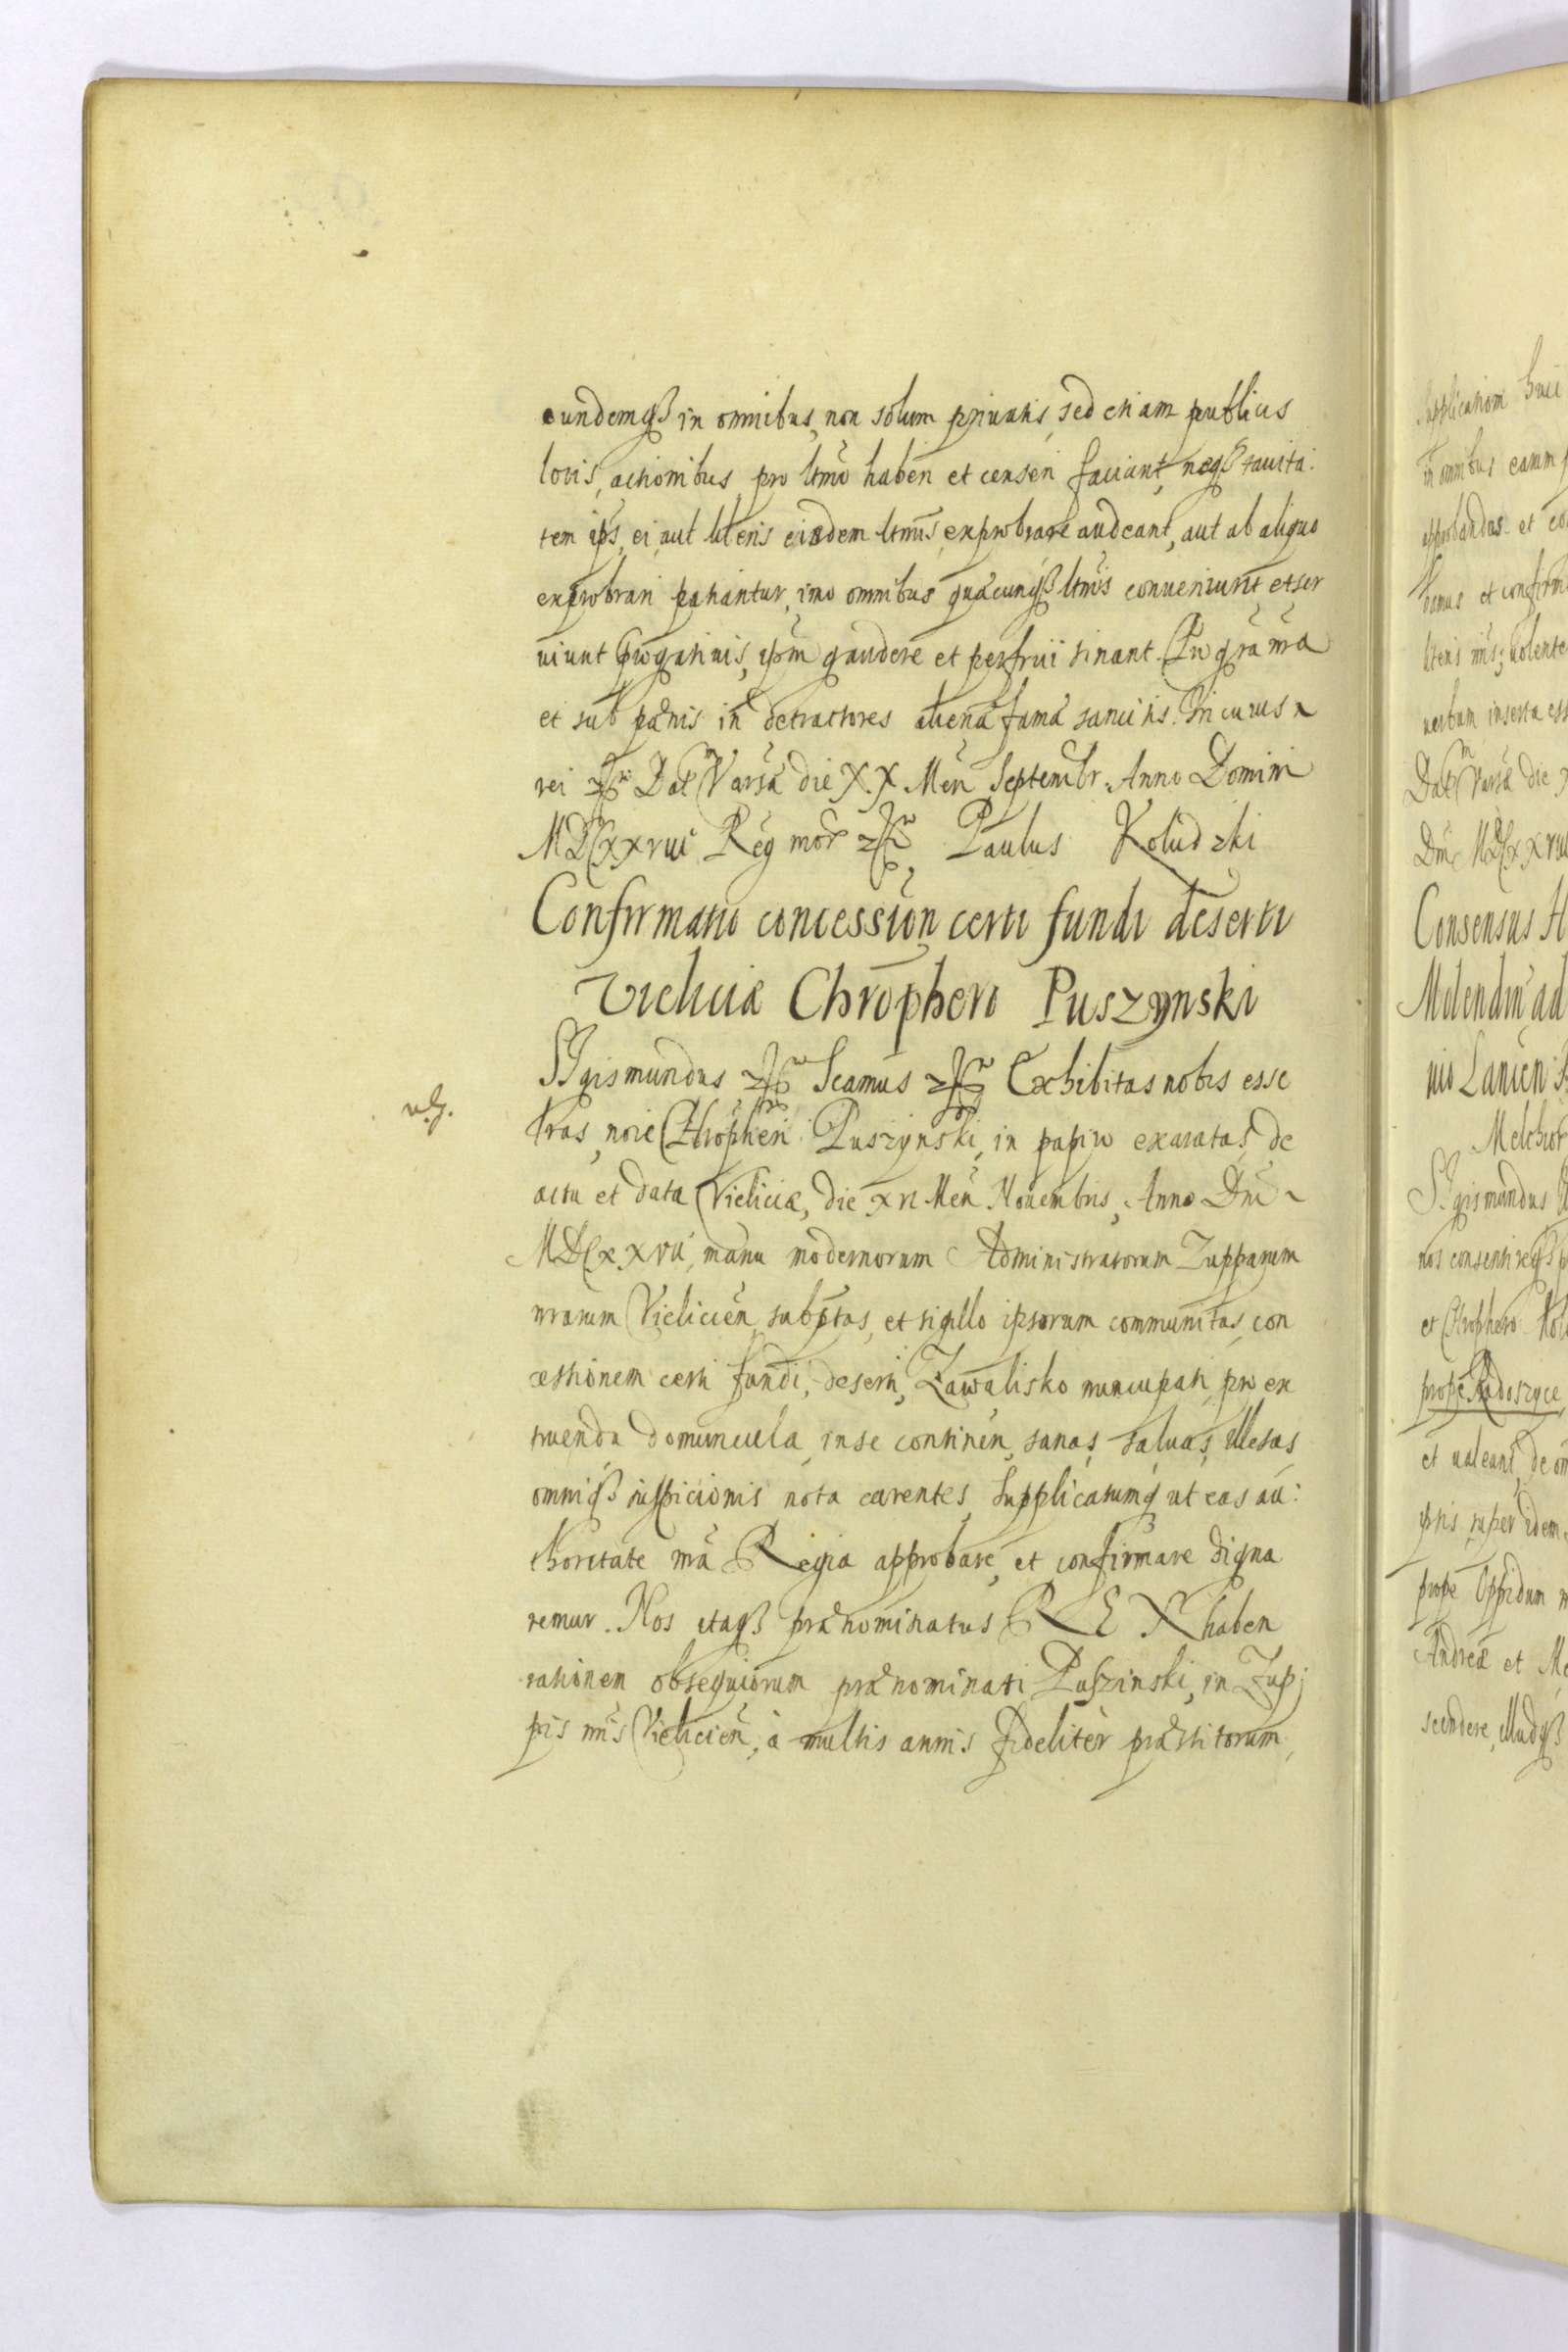 eundemqȝ in omnibus, non solum priuatis, sed etiam publicis
locis, actionibus pro ltmo haberi et censeri faciant, neqȝ tacita:
tem ips, ei, aut literis eiusdem ltmis, exprobrare audeant, aut ab aliquo
exprobrari patiantur, imo omnibus quæcunqȝ ltmis conueniunt et ser
uiunt prærogatiuis, ipm gaudere et perfrui sinant. Pro gra nra
et sub pœnis in detractores alienæ famæ sancitis. In cuius
rei etc Dat Varsa die XX Men Septembr. Anno Domini
MDCXXVIII Reg nror etc. Paulus Koludzki
Confirmatio concession certi fundi deserti
Vieliciæ Chrophero Puszynski
Sigismundus etc Scamus etc Exhibitas nobis esse
lras, noie Chropheri Puszynski, in papiro exaratas, de
actu et data Vieliciæ, die XVI Men Nouembris, Anno Dni
MDCXXVII, manu modernorum Administratorum Zupparum
nrarum Vielicien, subptas, et sigillo ipsorum communitas, con
cessionem certi fundi, deserti, Zawalisko nuncupati, pro ex
truenda domuncula, in se continen, sanas, saluas, illesas
omniqȝ suspicionis nota carentes, Supplicatumqȝ ut eas au:
thoritate nra Regia approbare, et confirmare digna
remur. Nos itaqȝ prænominatus REX haben
rationem obsequiorum prænominati Puszinski, in Zup:
pis nris Vielicien, à multis annis fideliter præstitorum,
Supplicationi huic
in omnibus earum
approbandas et co
bamus et confirm
literis nris; uolente
uerbum inserta ess
Dat Varsa die X
Dni MDCXXVIII
Consensus
Molendin ad
Melchior
Sigismundus
nos consentireqȝ
et Chrophero
prope Radoszyce,
et ualeant, de om
ipsis super idem
prope Oppidum
Andreæ et Me
scendere, illudqȝ